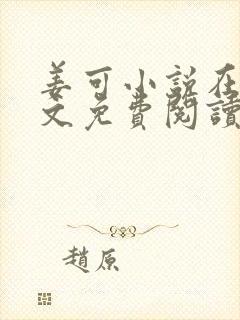 姜可小說在
文免費閱讀
趙原